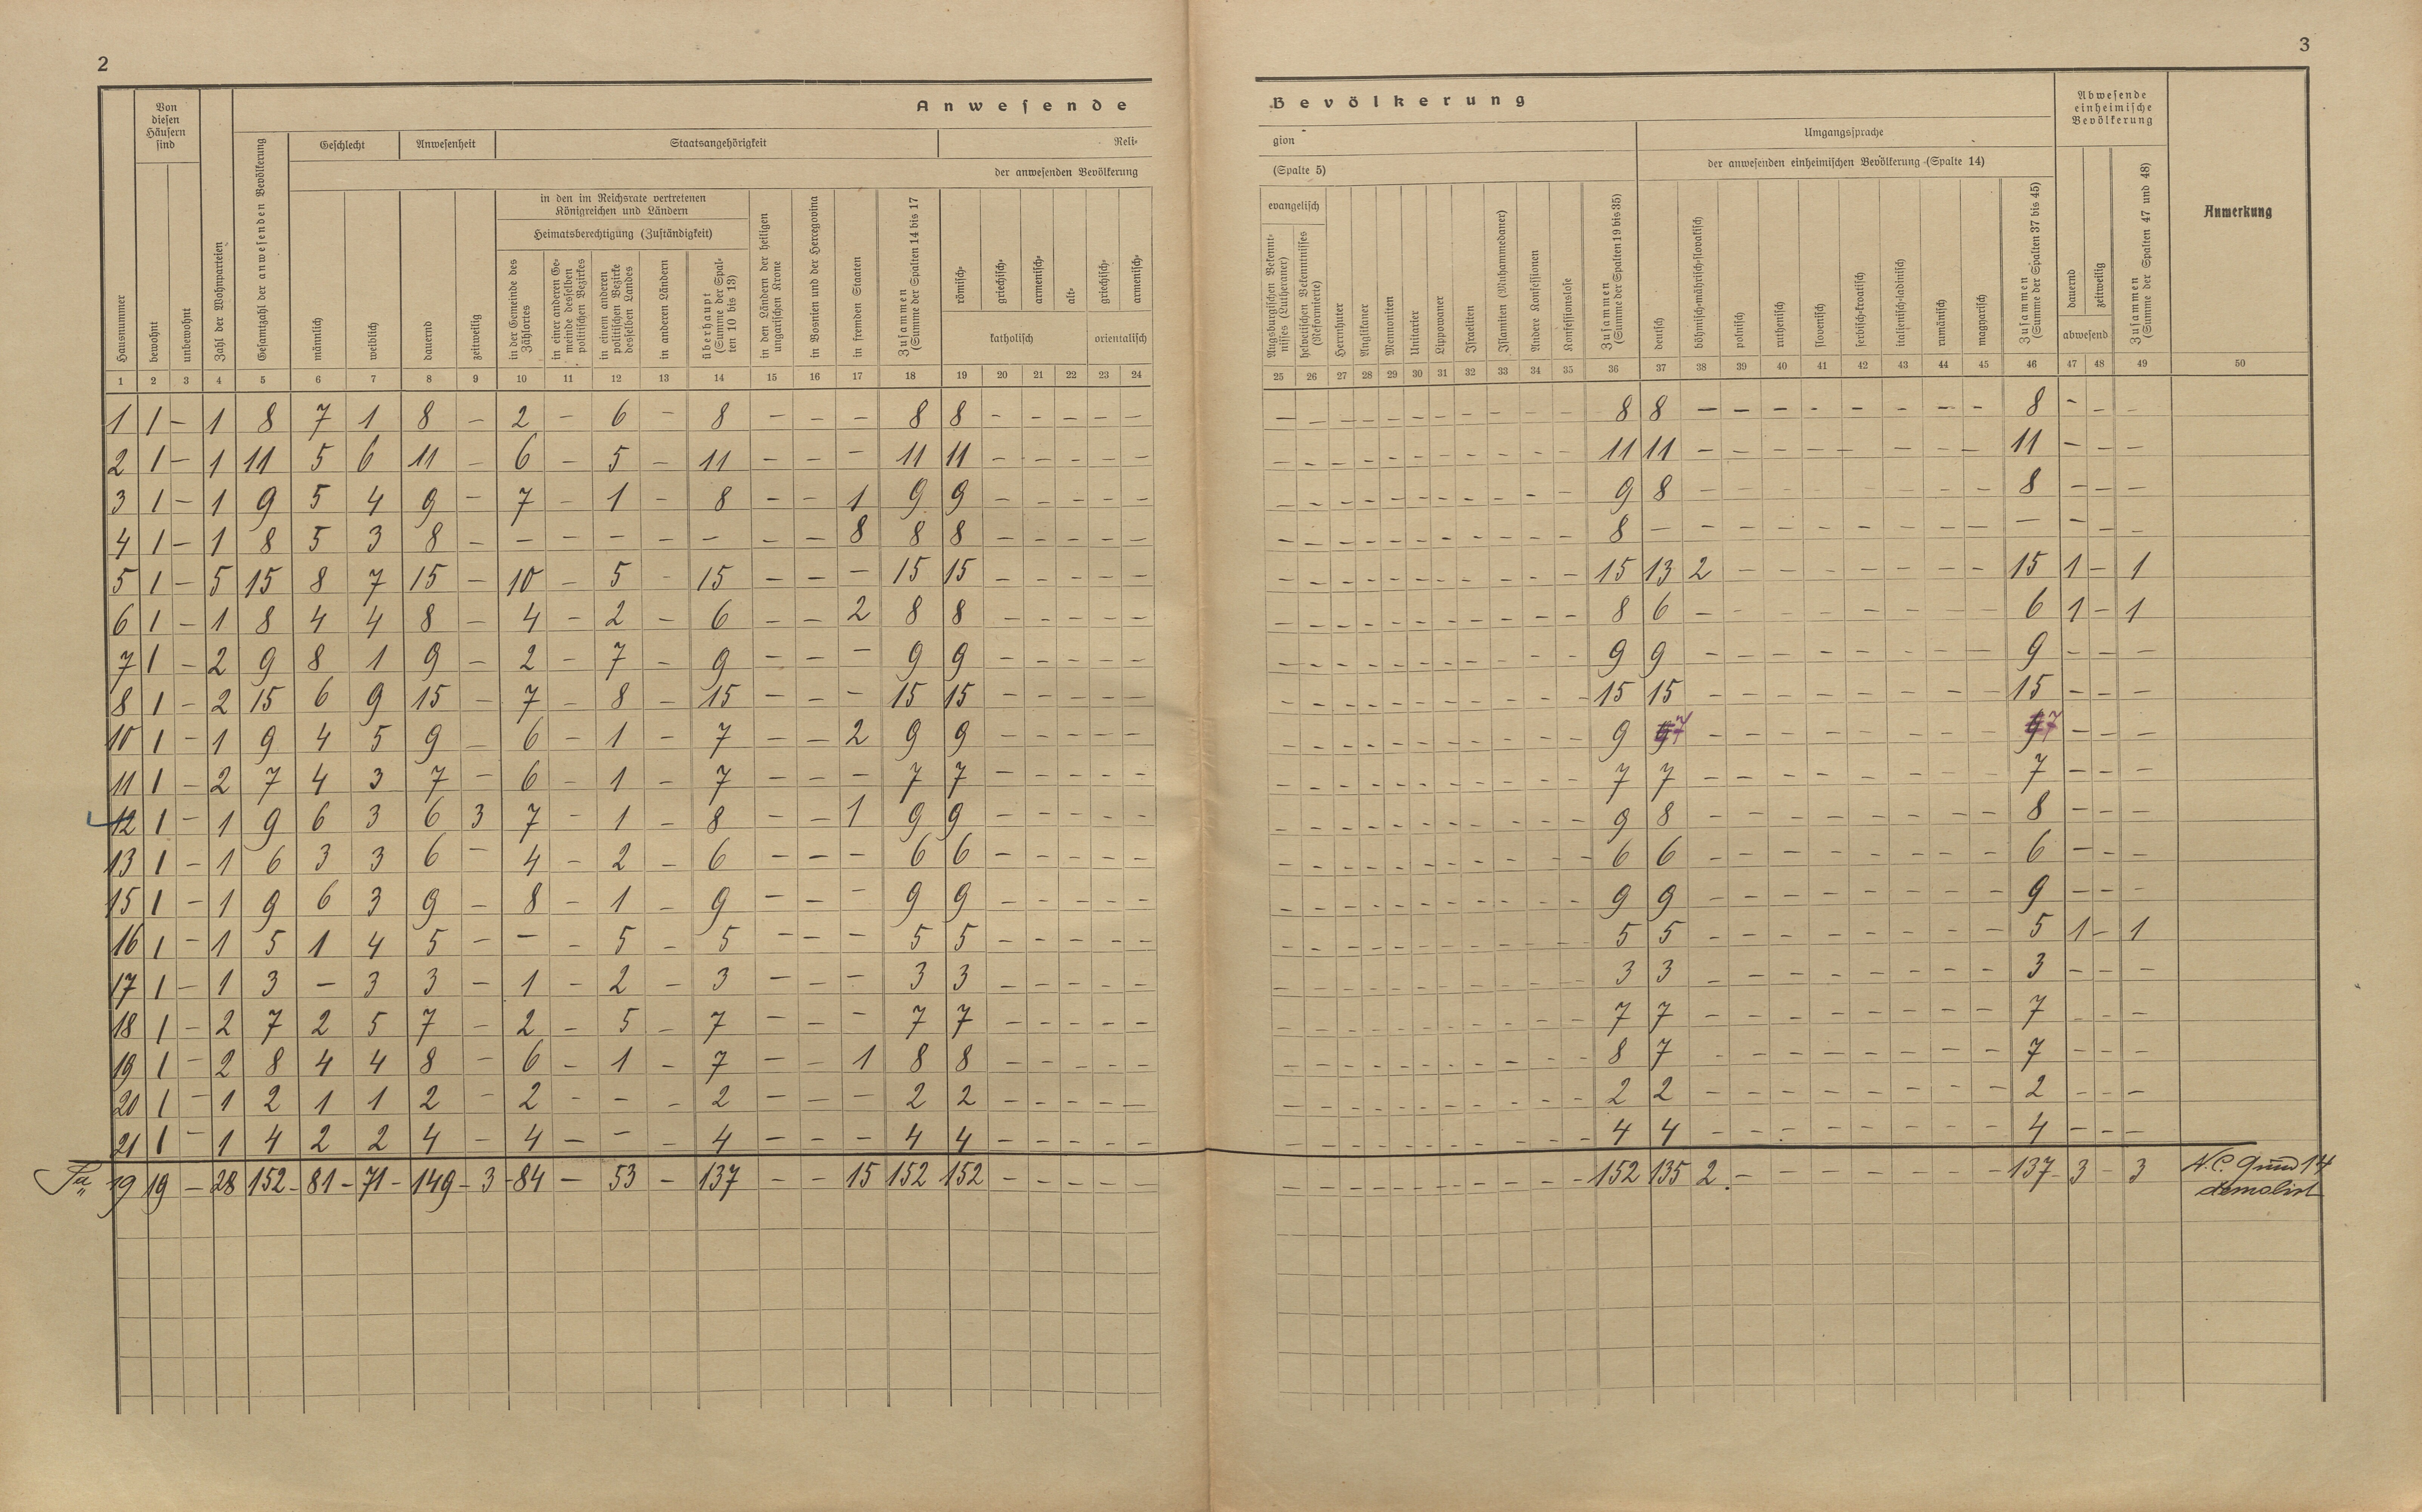 2
3
Anwesende
Bevölkerung
Von diesen Häusern sind
Geschlecht
Anwesenheit
Staatsangehörigkeit
Reli-
gion
der anwesenden Bevölkerung
(Spalte 5)
Umgangssprache
der anwesenden einheimischen Bevölkerung (Spalte 14)
Abwesende einheimische Bevölkerung
Anmerkung
in den im Reichsrate vertretenen Königreichen und Ländern
Heimatsberechtigung (Zuständigkeit)
Hausnummer
bewohnt
unbewohnt
Zahl der Wohnparteien
Gesamtzahl der anwesenden Bevölkerung
männlich
weiblich
dauernd
zeitweilig
in der Gemeinde des Zählortes
in einer anderen Gemeinde desselben politischen Bezirkes
in einem anderen politischen Bezirke desselben Landes
in anderen Ländern
überhaupt (Summe der Spalten 10 bis 13)
in den Ländern der heiligen ungarischen Krone
in Bosnien und der Hercegovina
in fremden Staaten
Zusammen (Summe der Spalten 14 bis 17)
römisch-
griechisch-
armenisch-
alt-
katholisch
griechisch-
armenisch-
orientalisch
evangelisch
Augsburgischen Bekenntnisses (Lutheraner)
helvetischen Bekenntnisses (Reformierte)
Herrnhuter
Anglikaner
Mennoniten
Unitarier
Lippowaner
Israeliten
Islamiten (Muhammedaner)
Andere Konfessionen
Konfessionslose
Zusammen (Summe der Spalten 19 bis 35)
deutsch
böhmisch-mährisch-slovakisch
polnisch
ruthenisch
slovenisch
serbisch-kroatisch
italienisch-ladinisch
rumänisch
magyarisch
Zusammen (Summe der Spalten 37 bis 45)
dauernd
zeitweilig
abwesend
Zusammen (Summe der Spalten 47 und 48)
1 2 3 4 5 6 7 8 9 10 11 12 13 14 15 16 17 18 19 20 21 22 23 24 25 26 27 28 29 30 31 32 33 34 35 36 37 38 39 40 41 42 43 44 45 46 47 48 49 50
1 1 – 1 8 7 1 8 – 2 – 6 – 8 – – – 8 8 – – – – – – – – – – – – – – – – 8 8 – – – – – – – – 8 – – –
2 1 – 1 11 5 6 11 – 6 – 5 – 11 – – – 11 11 – – – – – – – – – – – – – – – – 11 11 – – – – – – – – 11 – – –
3 1 – 1 9 5 4 9 – 7 – 1 – 8 – – 1 9 9 – – – – – – – – – – – – – – – – 9 8 – – – – – – – – 8 – – –
4 1 – 1 8 5 3 8 – – – – – – – – 8 8 8 – – – – – – – – – – – – – – – – 8 – – – – – – – – – – – – –
5 1 – 5 15 8 7 15 – 10 – 5 – 15 – – – 15 15 – – – – – – – – – – – – – – – – 15 13 2 – – – – – – – 15 1 – 1
6 1 – 1 8 4 4 8 – 4 – 2 – 6 – – 2 8 8 – – – – – – – – – – – – – – – – 8 6 – – – – – – – – 6 1 – 1
7 1 – 2 9 8 1 9 – 2 – 7 – 9 – – – 9 9 – – – – – – – – – – – – – – – – 9 9 – – – – – – – – 9 – – –
8 1 – 2 15 6 9 15 – 7 – 8 – 15 – – – 15 15 – – – – – – – – – – – – – – – – 15 15 – – – – – – – – 15 – – –
10 1 – 1 9 4 5 9 – 6 – 1 – 7 – – 2 9 9 – – – – – – – – – – – – – – – – 9 7 – – – – – – – – 7 – – –
11 1 – 2 7 4 3 7 – 6 – 1 – 7 – – – 7 7 – – – – – – – – – – – – – – – – 7 7 – – – – – – – – 7 – – –
12 1 – 1 9 6 3 6 3 7 – 1 – 8 – – 1 9 9 – – – – – – – – – – – – – – – – 9 8 – – – – – – – – 8 – – –
13 1 – 1 6 3 3 6 – 4 – 2 – 6 – – – 6 6 – – – – – – – – – – – – – – – – 6 6 – – – – – – – – 6 – – –
15 1 – 1 9 6 3 9 – 8 – 1 – 9 – – – 9 9 – – – – – – – – – – – – – – – – 9 9 – – – – – – – – 9 – – –
16 1 – 1 5 1 4 5 – – – 5 – 5 – – – 5 5 – – – – – – – – – – – – – – – – 5 5 – – – – – – – – 5 1 – 1
17 1 – 1 3 – 3 3 – 1 – 2 – 3 – – – 3 3 – – – – – – – – – – – – – – – – 3 3 – – – – – – – – 3 – – –
18 1 – 2 7 2 5 7 – 2 – 5 – 7 – – – 7 7 – – – – – – – – – – – – – – – – 7 7 – – – – – – – – 7 – – –
19 1 – 2 8 4 4 8 – 6 – 1 – 7 – – 1 8 8 – – – – – – – – – – – – – – – – 8 7 – – – – – – – – 7 – – –
20 1 – 1 2 1 1 2 – 2 – – – 2 – – – 2 2 – – – – – – – – – – – – – – – – 2 2 – – – – – – – – 2 – – –
21 1 – 1 4 2 2 4 – 4 – – – 4 – – – 4 4 – – – – – – – – – – – – – – – – 4 4 – – – – – – – – 4 – – –
19 19 – 28 152 81 71 149 3 84 – 53 – 137 – – 15 152 152 – – – – – – – – – – – – – – – – 152 135 2 – – – – – – – 137 3 – 3 N.C. 14
demolirt